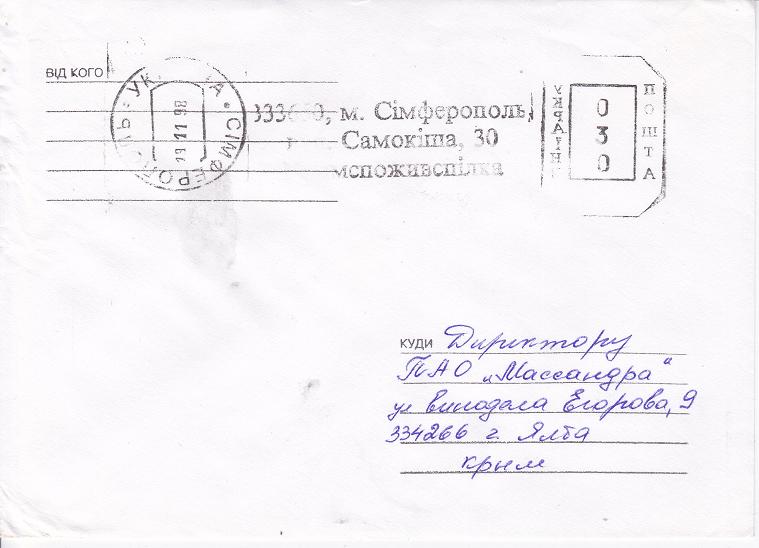 ВІД КОГО
УК А * СІМФЕРОП ЛЬ *
19 11 98
м. Сімферополь,
Самокіша, 30
УКРАЇНА
0
3
0
ПОШТА
КУДИ Директору
ПАО „Массандра“
ул Винодела Егорова, 9
334266 г. Ялта
крым